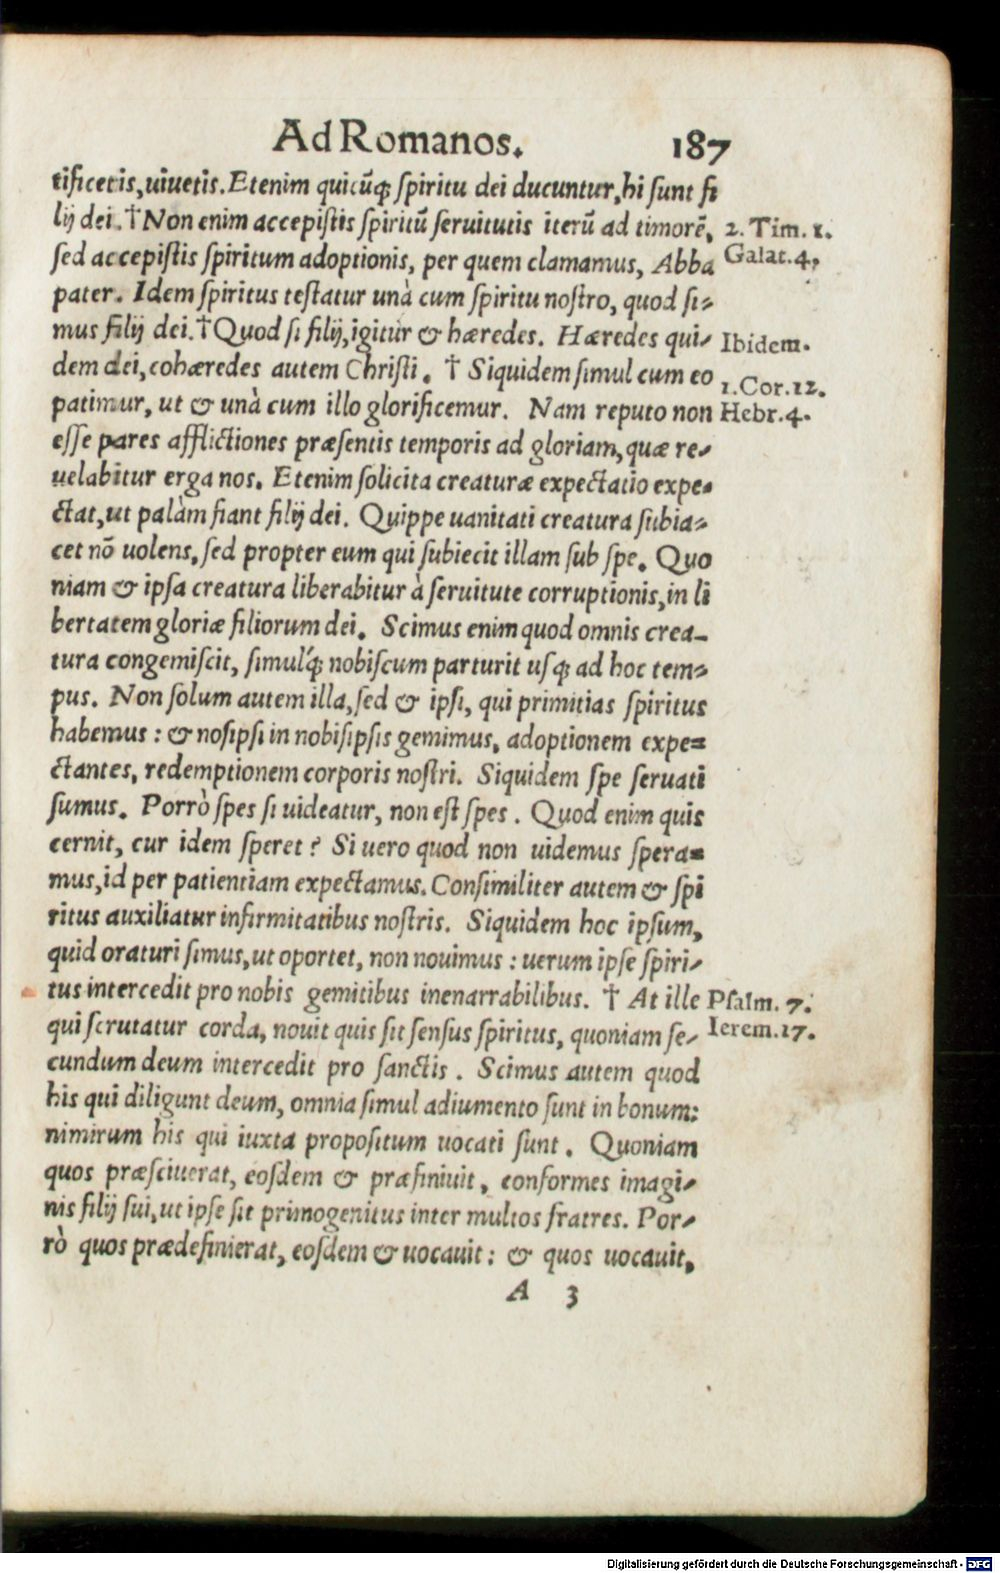 Ad Romanos. 187
tificetis, uiuetis. Etenim quicũq; ſpiritu dei ducuntur, hi ſunt fi
lij dei. † Non enim accepiſtis ſpiritũ ſeruitutis iterũ ad timorẽ, 2. Tim. 1.
ſed accepiſtis ſpiritum adoptionis, per quem clamamus, Abba Galat. 4,
pater. Idem ſpiritus teſtatur unà cum ſpiritu noſtro, quod ſi-
mus filij dei. † Quod ſi filij, igitur & hæredes. Hæredes qui- Ibidem.
dem dei, cohæredes autem Chriſti. † Siquidem ſimul cum eo 1. Cor. 12.
patimur, ut & unà cum illo glorificemur. Nam reputo non Hebr. 4.
eſſe pares afflictiones præſentis temporis ad gloriam, quæ re-
uelabitur erga nos. Etenim ſolicita creaturæ expectatio expe-
ctat, ut palàm fiant filij dei. Quippe uanitati creatura ſubia-
cet nõ uolens, ſed propter eum qui ſubiecit illam ſub ſpe. Quo
niam & ipſa creatura liberabitur à ſeruitute corruptionis, in li
bertatem gloriæ filiorum dei. Scimus enim quod omnis crea-
tura congemiſcit, ſimulq́; nobiſcum parturit uſq; ad hoc tem-
pus. Non ſolum autem illa, ſed & ipſi, qui primitias ſpiritus
habemus: & noſipſi in nobiſipſis gemimus, adoptionem expe-
ctantes, redemptionem corporis noſtri. Siquidem ſpe ſeruati
ſumus. Porrò ſpes ſi uideatur, non eſt ſpes. Quod enim quis
cernit, cur idem ſperet? Si uero quod non uidemus ſpera-
mus, id per patientiam expectamus. Conſimiliter autem & ſpi
ritus auxiliatur infirmitatibus noſtris. Siquidem hoc ipſum,
quid oraturi ſimus, ut oportet, non nouimus: uerum ipſe ſpiri-
tus intercedit pro nobis gemitibus inenarrabilibus. † At ille Pſalm. 7.
qui ſcrutatur corda, nouit quis ſit ſenſus ſpiritus, quoniam ſe- Ierem. 17.
cundum deum intercedit pro ſanctis. Scimus autem quod
his qui diligunt deum, omnia ſimul adiumento ſunt in bonum:
nimirum his qui iuxta propoſitum uocati ſunt. Quoniam
quos præſciuerat, eoſdem & præfiniuit, conformes imagi-
nis filij ſui, ut ipſe ſit primogenitus inter multos fratres. Por-
rò quos prædefinierat, eoſdem & uocauit: & quos uocauit,
A 3
Digitalisierung gefördert durch die Deutsche Forschungsgemeinschaft - DFG